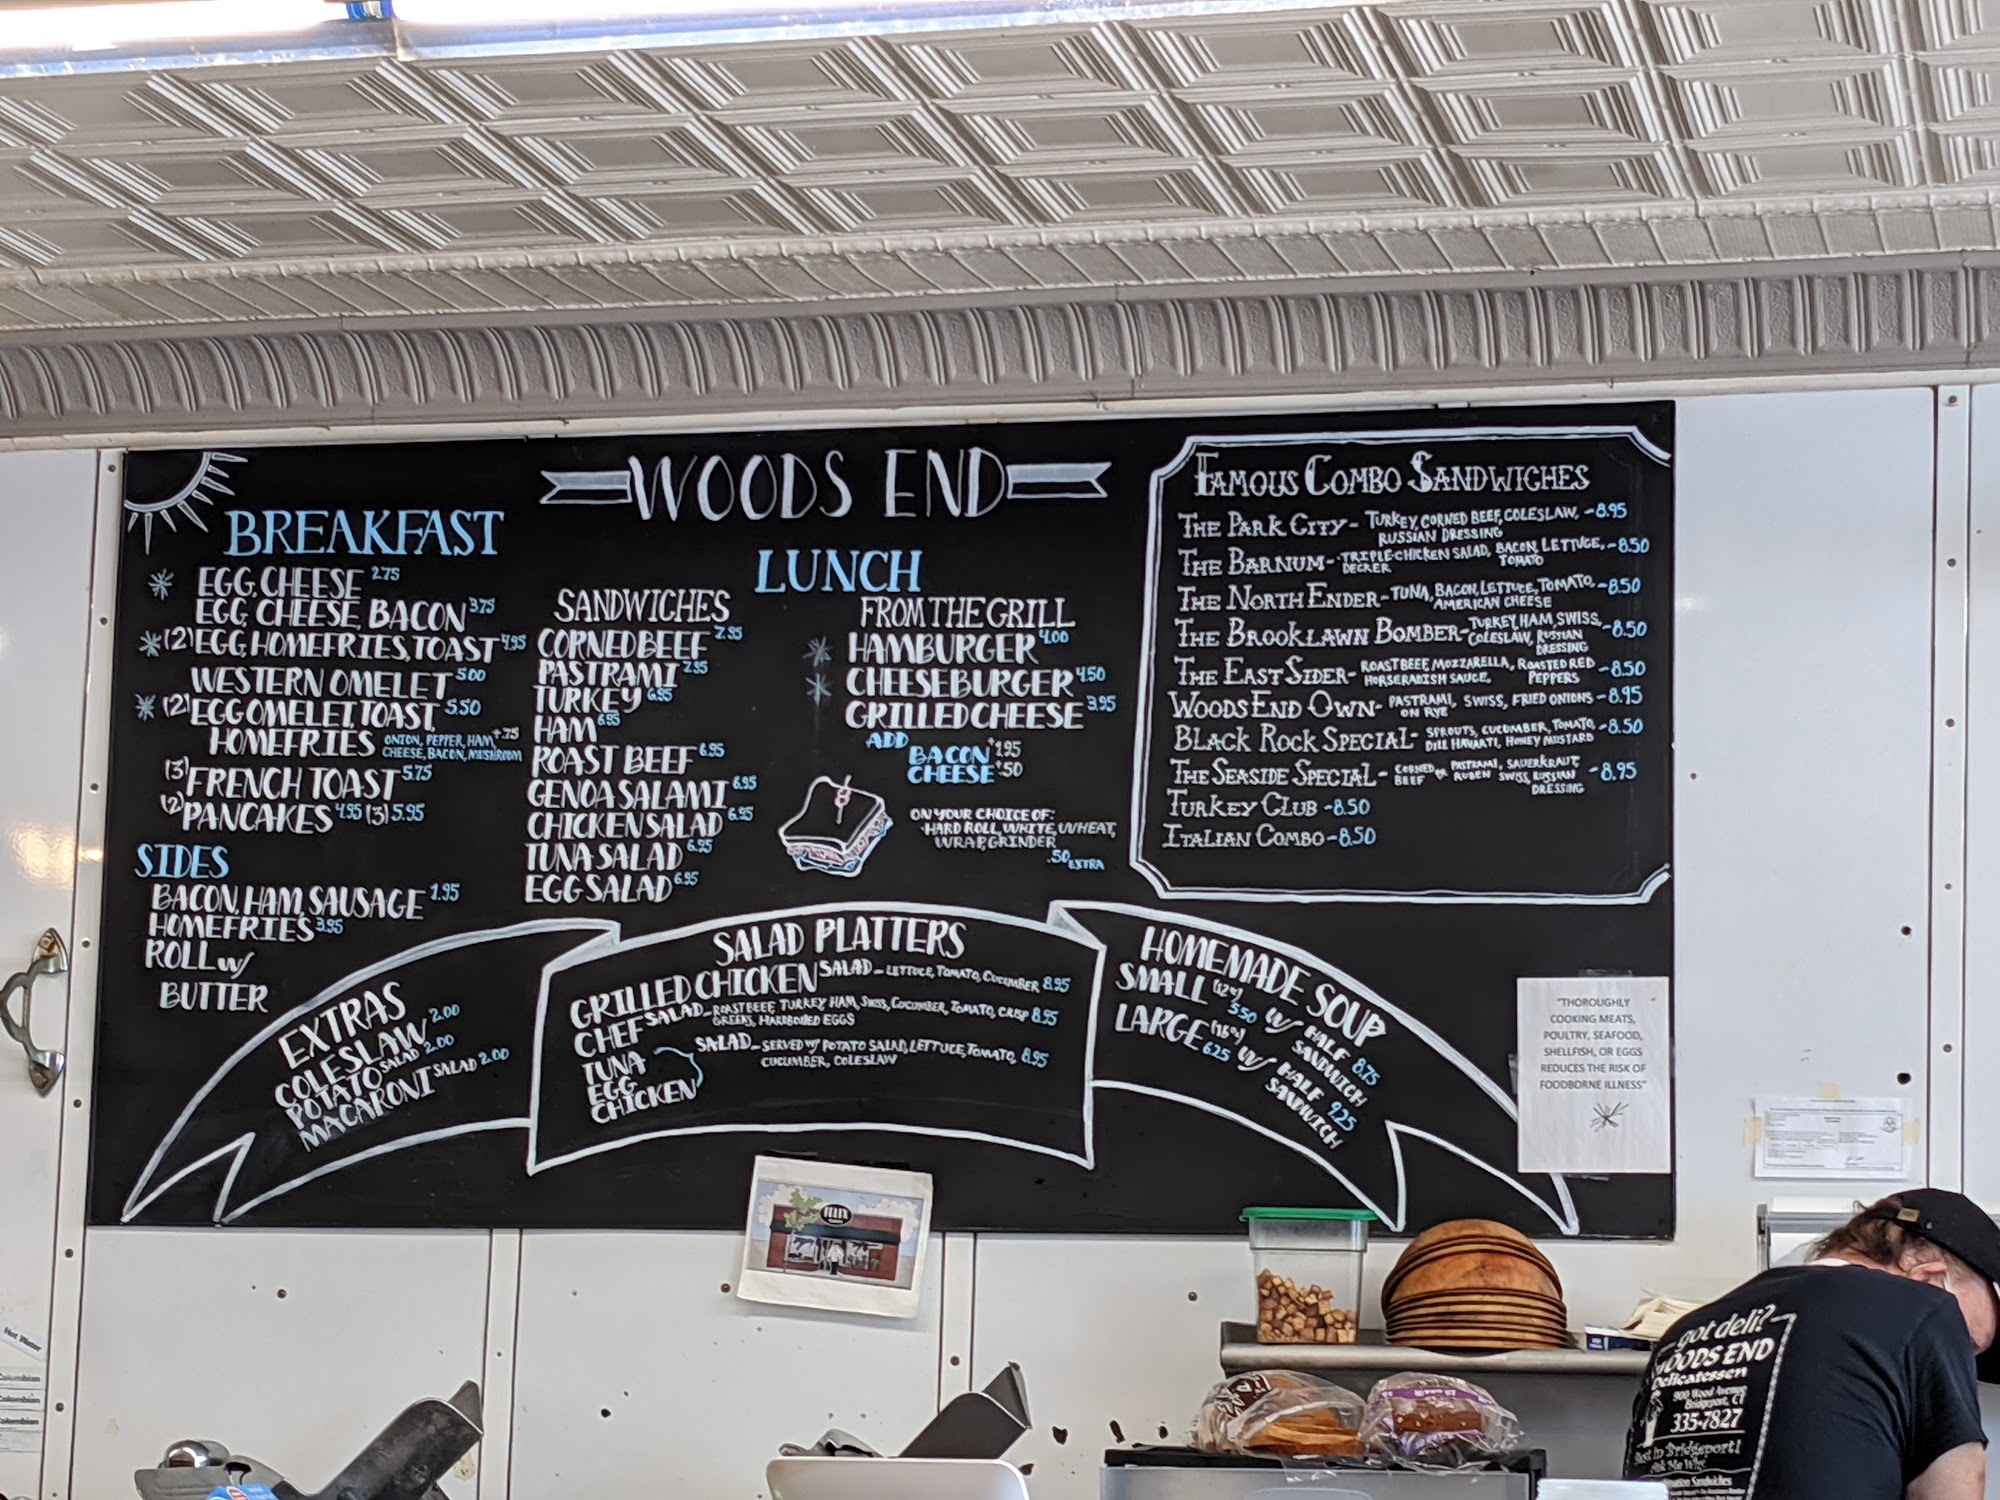 WOODS END
BREAKFAST
EGG, CHEESE 2.75
EGG, CHEESE, BACON 3.75
(2) EGG, HOMEFRIES, TOAST 4.95
WESTERN OMELET 5.00
(2) EGG OMELET, TOAST, 5.50
HOMEFRIES ONION, PEPPER, HAM, +.75
CHEESE, BACON, MUSHROOM
(3) FRENCH TOAST 5.75
(2) PANCAKES 4.95 (3) 5.95
SIDES
BACON, HAM, SAUSAGE 1.95
HOMEFRIES 3.95
ROLL w/
BUTTER
LUNCH
SANDWICHES
CORNED BEEF 7.95
PASTRAMI 7.95
TURKEY 6.95
HAM 6.95
ROAST BEEF 6.95
GENOA SALAMI 6.95
CHICKEN SALAD 6.95
TUNA SALAD 6.95
EGG SALAD 6.95
FROM THE GRILL
HAMBURGER 4.00
CHEESEBURGER 4.50
GRILLED CHEESE 3.95
ADD
BACON +1.95
CHEESE +.50
ON YOUR CHOICE OF:
HARD ROLL, WHITE, WHEAT,
WRAP, GRINDER
.50 EXTRA
FAMOUS COMBO SANDWICHES
THE PARK CITY - TURKEY, CORNED BEEF, COLESLAW, - 8.95
RUSSIAN DRESSING
THE BARNUM - TRIPLE- CHICKEN SALAD, BACON, LETTUCE, - 8.50
DECKER TOMATO
THE NORTH ENDER - TUNA, BACON, LETTUCE, TOMATO, - 8.50
AMERICAN CHEESE
THE BROOKLAWN BOMBER - TURKEY, HAM, SWISS, - 8.50
COLESLAW, RUSSIAN
DRESSING
THE EAST SIDER - ROAST BEEF, MOZZARELLA, ROASTED RED - 8.50
HORSERADISH SAUCE, PEPPERS
WOODS END OWN - PASTRAMI, SWISS, FRIED ONIONS - 8.95
ON RYE
BLACK ROCK SPECIAL - SPROUTS, CUCUMBER, TOMATO, - 8.50
DILL HAVARTI, HONEY MUSTARD
THE SEASIDE SPECIAL - CORNED or PASTRAMI, SAUERKRAUT, - 8.95
BEEF RUBEN SWISS, RUSSIAN
DRESSING
TURKEY CLUB - 8.50
ITALIAN COMBO - 8.50
EXTRAS
COLESLAW 2.00
POTATO SALAD 2.00
MACARONI SALAD 2.00
SALAD PLATTERS
GRILLED CHICKEN SALAD - LETTUCE, TOMATO, CUCUMBER 8.95
CHEF SALAD - ROAST BEEF, TURKEY, HAM, SWISS, CUCUMBER, TOMATO, CRISP 8.95
GREENS, HARDBOILED EGGS
TUNA
EGG
CHICKEN
SALAD - SERVED w/ POTATO SALAD, LETTUCE, TOMATO, 8.95
CUCUMBER, COLESLAW
HOMEMADE SOUP
SMALL (12oz) 5.50 w/ HALF SANDWICH 8.75
LARGE (16oz) 6.25 w/ HALF SANDWICH 9.25
"THOROUGHLY
COOKING MEATS,
POULTRY, SEAFOOD,
SHELLFISH, OR EGGS
REDUCES THE RISK OF
FOODBORNE ILLNESS"
got deli?
WOODS END
Delicatessen
900 Wood Avenue
Bridgeport, CT
335-7827
Hot Water
Colombian
Colombian
Colombian